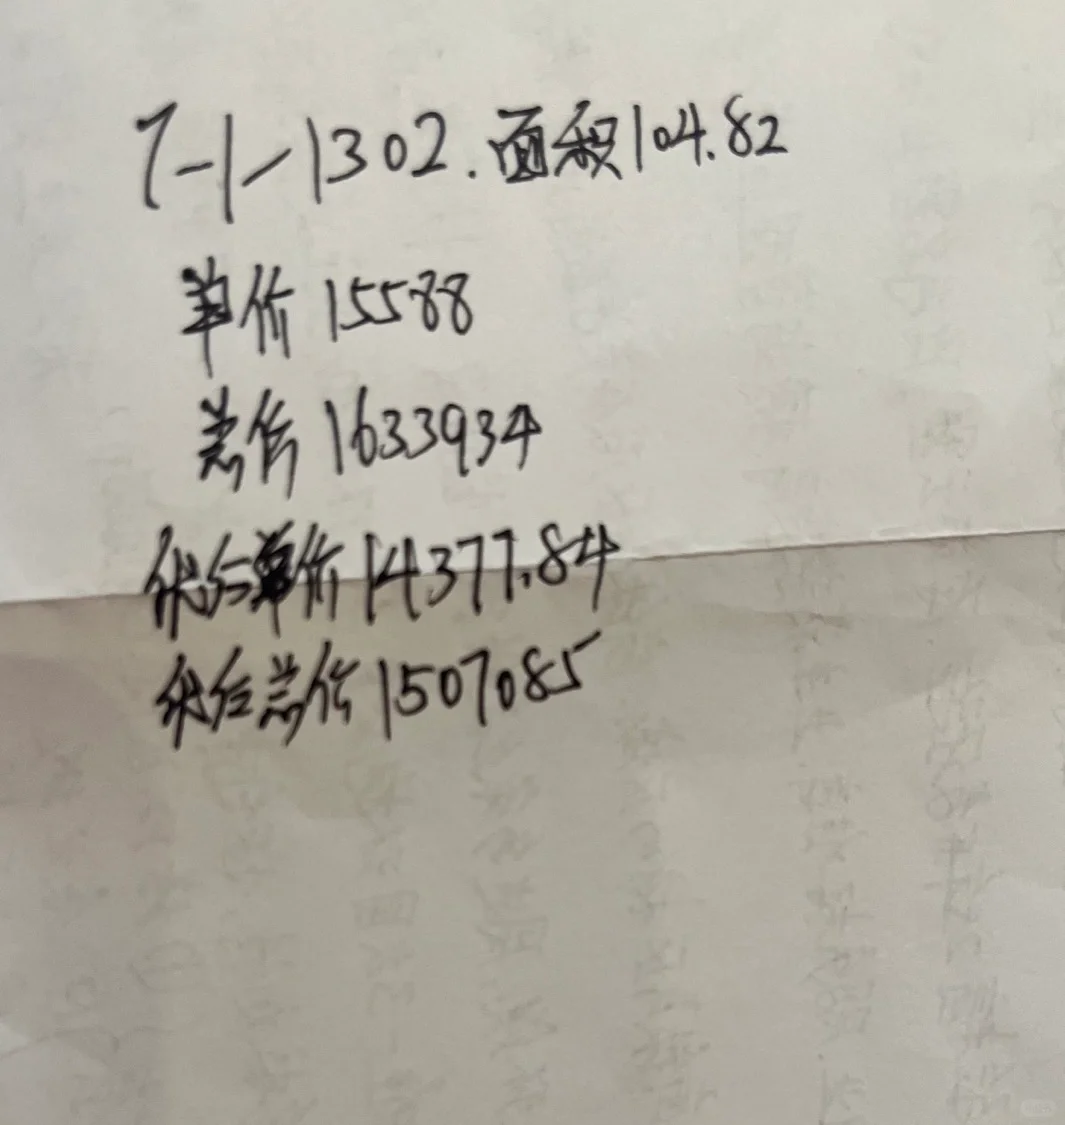 7-1-1302.面积104.82
单价15588
总价1633934
优后单价14377.84
优后总价1507085